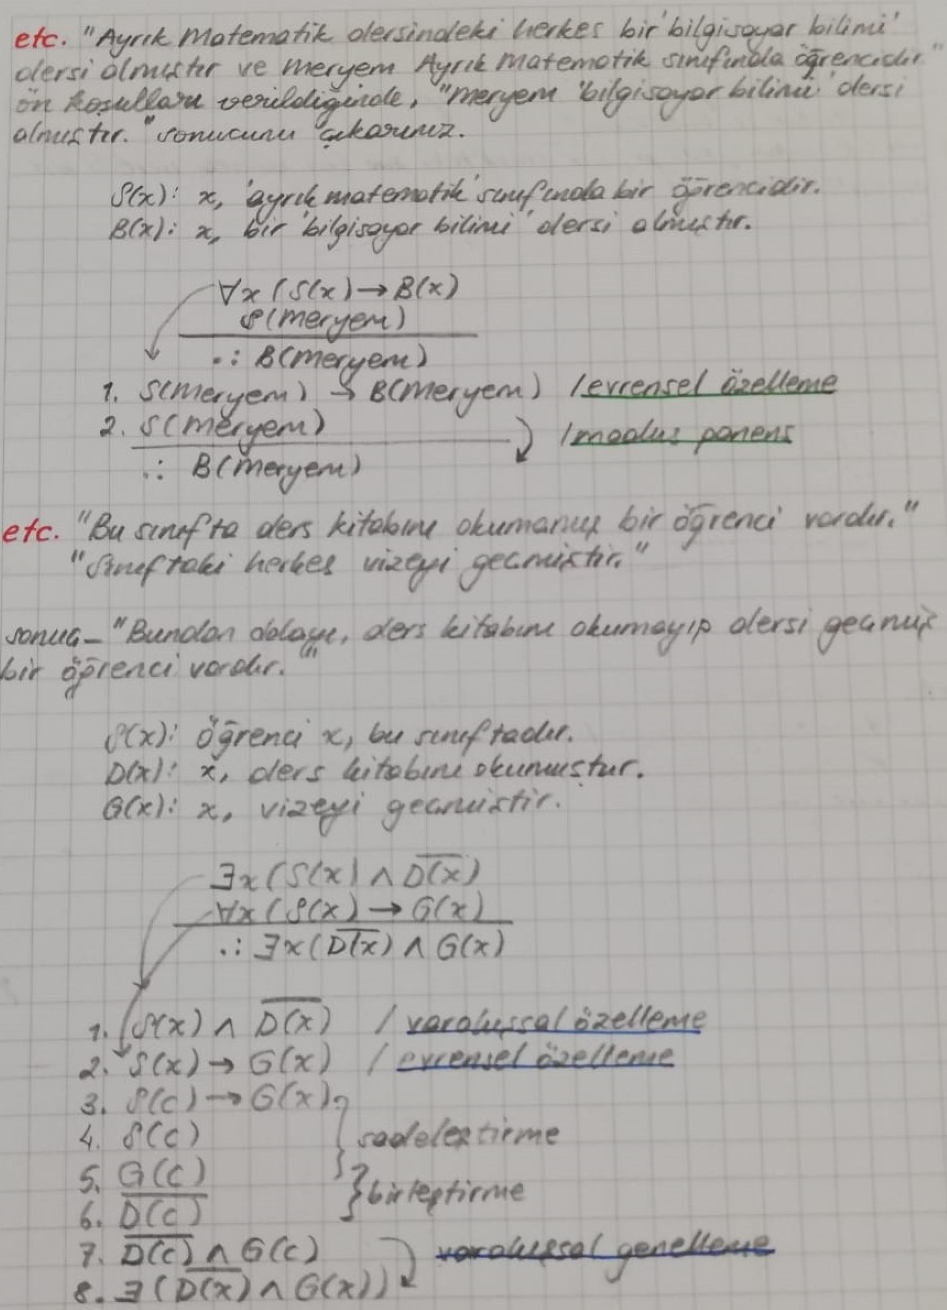 etc. "Ayrık Matematik dersindeki herkes bir 'bilgisayar bilimi'
dersi almıştır ve meryem Ayrık matematik sınıfında öğrencidir"
ön koşulları verildiğinde, "meryem 'bilgisayar bilimi' dersi
almıştır." sonucunu çıkarınız.
S(x): x, 'ayrık matematik' sınıfında bir öğrencidir.
B(x): x, bir 'bilgisayar bilimi' dersi almıştır.
∀x (S(x) → B(x)
S(meryem)
∴ B(meryem)
1. S(meryem) → B(meryem) / evrensel özelleme
2. S(meryem) / modus ponens
∴ B(meryem)
etc. "Bu sınıfta ders kitabını okumamış bir öğrenci vardır."
"Sınıftaki herkes vizeyi geçmiştir."
sonuç– "Bundan dolayı, ders kitabını okumayıp dersi geçmiş
bir öğrenci vardır."
S(x): öğrenci x, bu sınıftadır.
D(x): x, ders kitabını okumuştur.
G(x): x, vizeyi geçmiştir.
∃x (S(x) ∧ D̅(̅x̅)̅
∀x (S(x) → G(x)
∴ ∃x (D̅(̅x̅)̅ ∧ G(x)
1. (S(x) ∧ D̅(̅x̅)̅ / varoluşsal özelleme
2. S(x) → G(x) / evrensel özelleme
3. S(c) → G(x)
4. S(c) sadeleştirme
5. G(c)
6. D̅(̅c̅)̅ birleştirme
7. D̅(̅c̅)̅ ∧ G(c) varoluşsal genelleme
8. ∃ (D̅(̅x̅)̅ ∧ G(x))